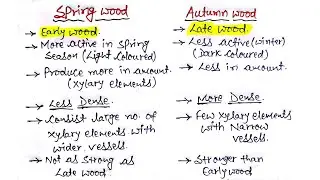 Spring wood
→ Early wood.
→ More active in spring
season (Light coloured)
→ Produce more in amount.
(xylary elements)
→ Less Dense.
→ Consist large no. of
xylary elements with
wider vessels.
→ Not as strong as
Late wood
Autumn wood
→ Late wood.
→ Less active (winter)
(Dark coloured)
→ Less in amount.
→ More Dense.
→ Few xylary elements
with Narrow
vessels.
→ Stronger than
Early wood